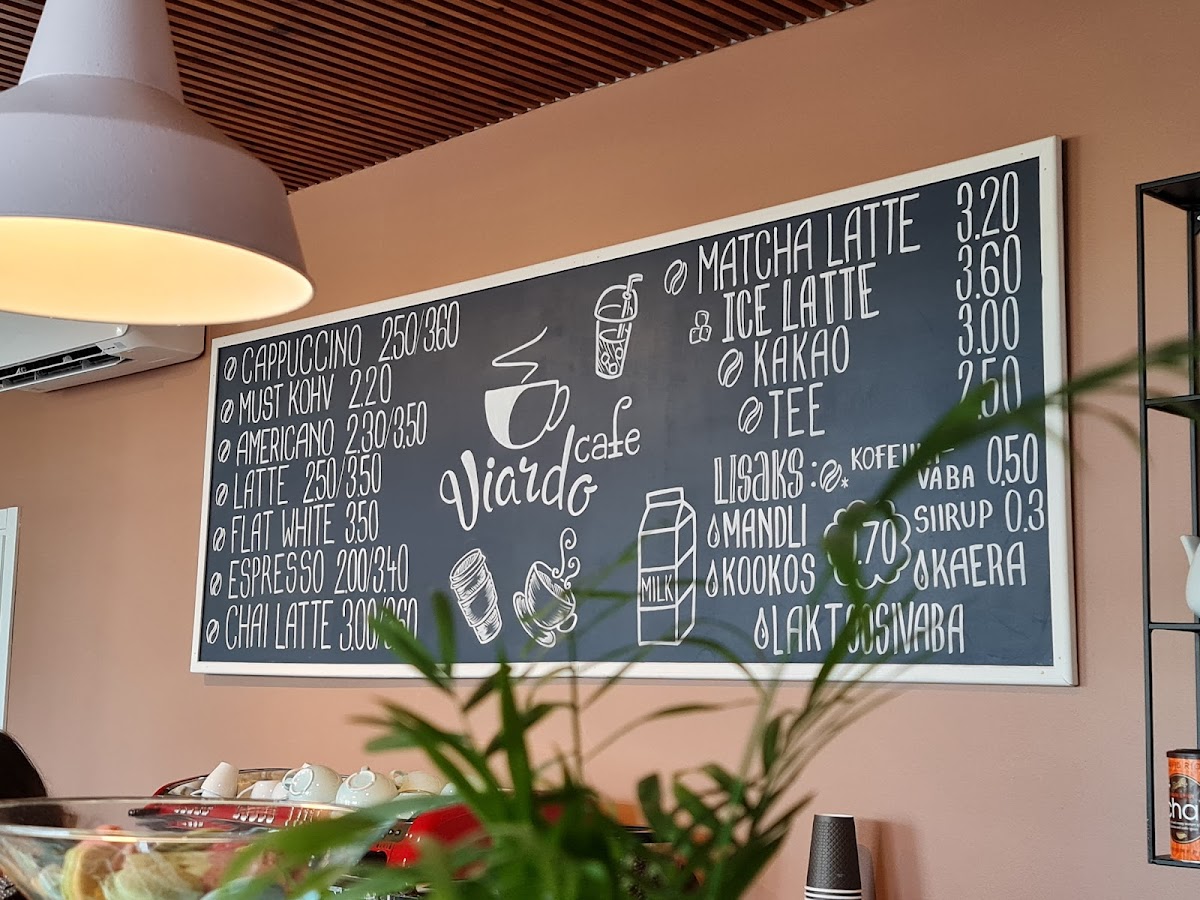 CAPPUCCINO 2.50/3.60
MUST KOHV 2.20
AMERICANO 2.30/3.50
LATTE 2.50/3.50
FLAT WHITE 3.50
ESPRESSO 2.00/3.40
CHAI LATTE 3.00/3.60
Viardo
cafe
MILK
MATCHA LATTE 3.20
ICE LATTE 3.60
KAKAO 3.00
TEE 2.50
LISAKS: * KOFEIINI-
VABA 0.50
MANDLI SIIRUP 0.3
KOOKOS 0.70 KAERA
LAKTOOSIVABA